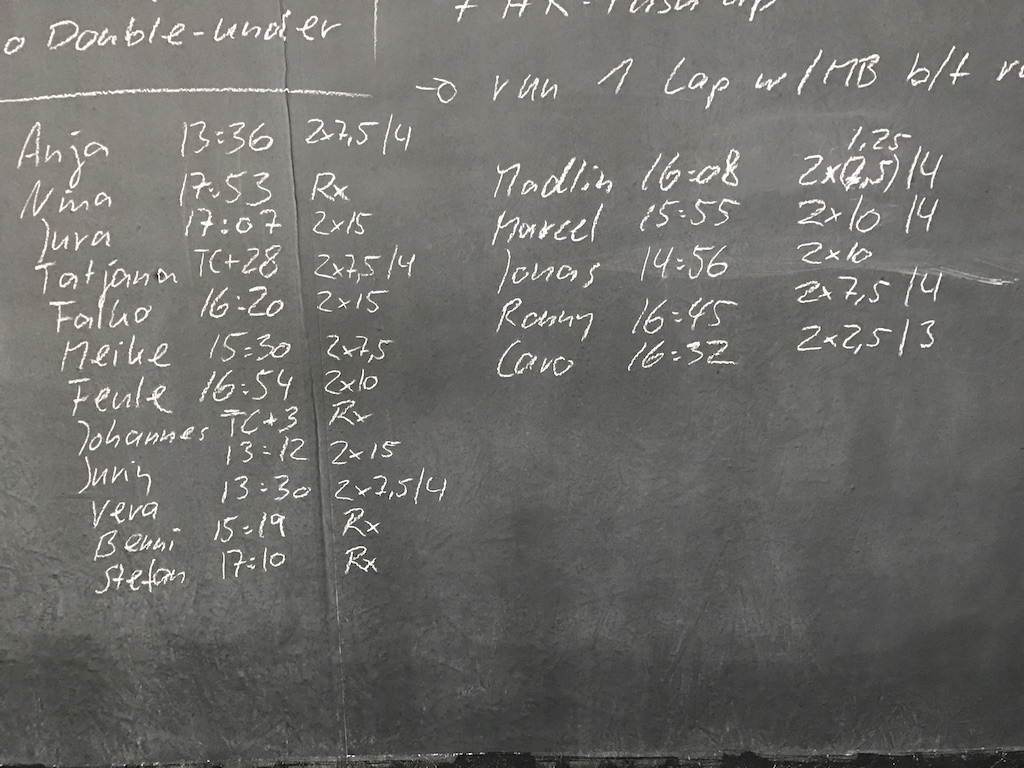 o Double-under
+ HR-Push up
→ run 1 Lap w/MB b/t
Anja 13:36 2x7,5/4
Nina 17:53 Rx
Jura 17:07 2x15
Tatjana TC+28 2x7,5/4
Falko 16:20 2x15
Meike 15:30 2x7,5
Fenle 16:54 2x10
Johannes TC+3 Rx
13:12 2x15
Vera 13:30 2x7,5/4
Benni 15:19 Rx
Stefan 17:10 Rx
1,25
Madlin 16:08 2x(7,5)/4
Marcel 15:55 2x10/4
Jonas 14:56 2x10
Ronny 16:45 2x7,5/4
Caro 16:32 2x2,5/3